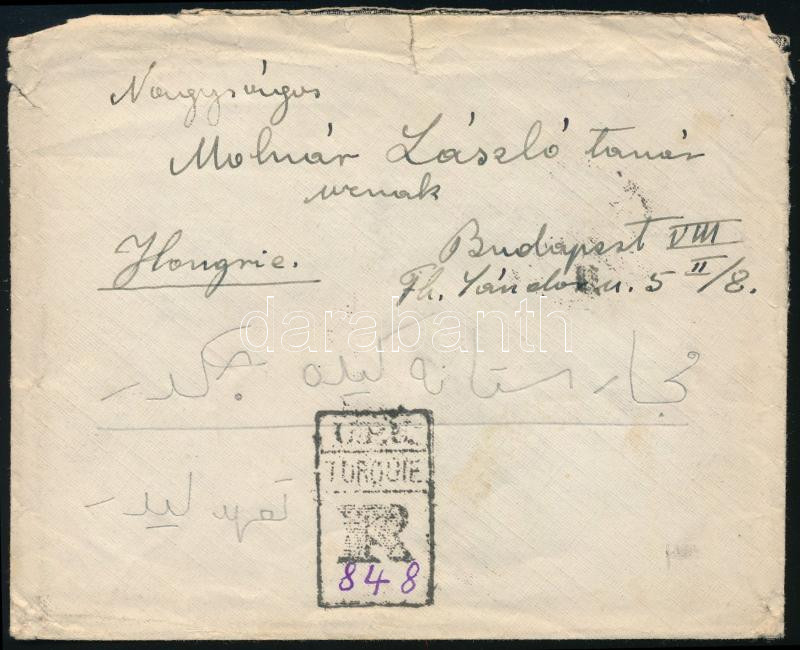 Nagyságos
Molnár László tanár
urnak
Hongrie.
Budapest VIII
Fh. Sándor u. 5 II/8.
darabanth
مجارستانه كیده جكدر
U.P.U.
TURQUIE
R
848